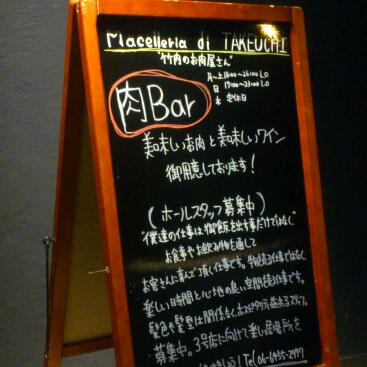 Macelleria di TAKEUCHI
"竹内のお肉屋さん"
月〜土 18:00〜26:00 L.O
日 17:00〜23:00 L.O
木 定休日
肉Bar
美味しいお肉と美味しいワイン
御用意しております!
(ホールスタッフ募集中)
"僕達の仕事は御飯を出す事だけではなく"
お食事やお飲み物を通して
お客さんに喜んで頂く仕事です。物売る仕事ではなく
楽しい時間と心地の良い空間を売る仕事です。
髪色や髪型は関係なく、ホスピタリティ溢れるスタッフ
募集中。3号店に向けて楽しい居場所を
Tel 06-6455-2977